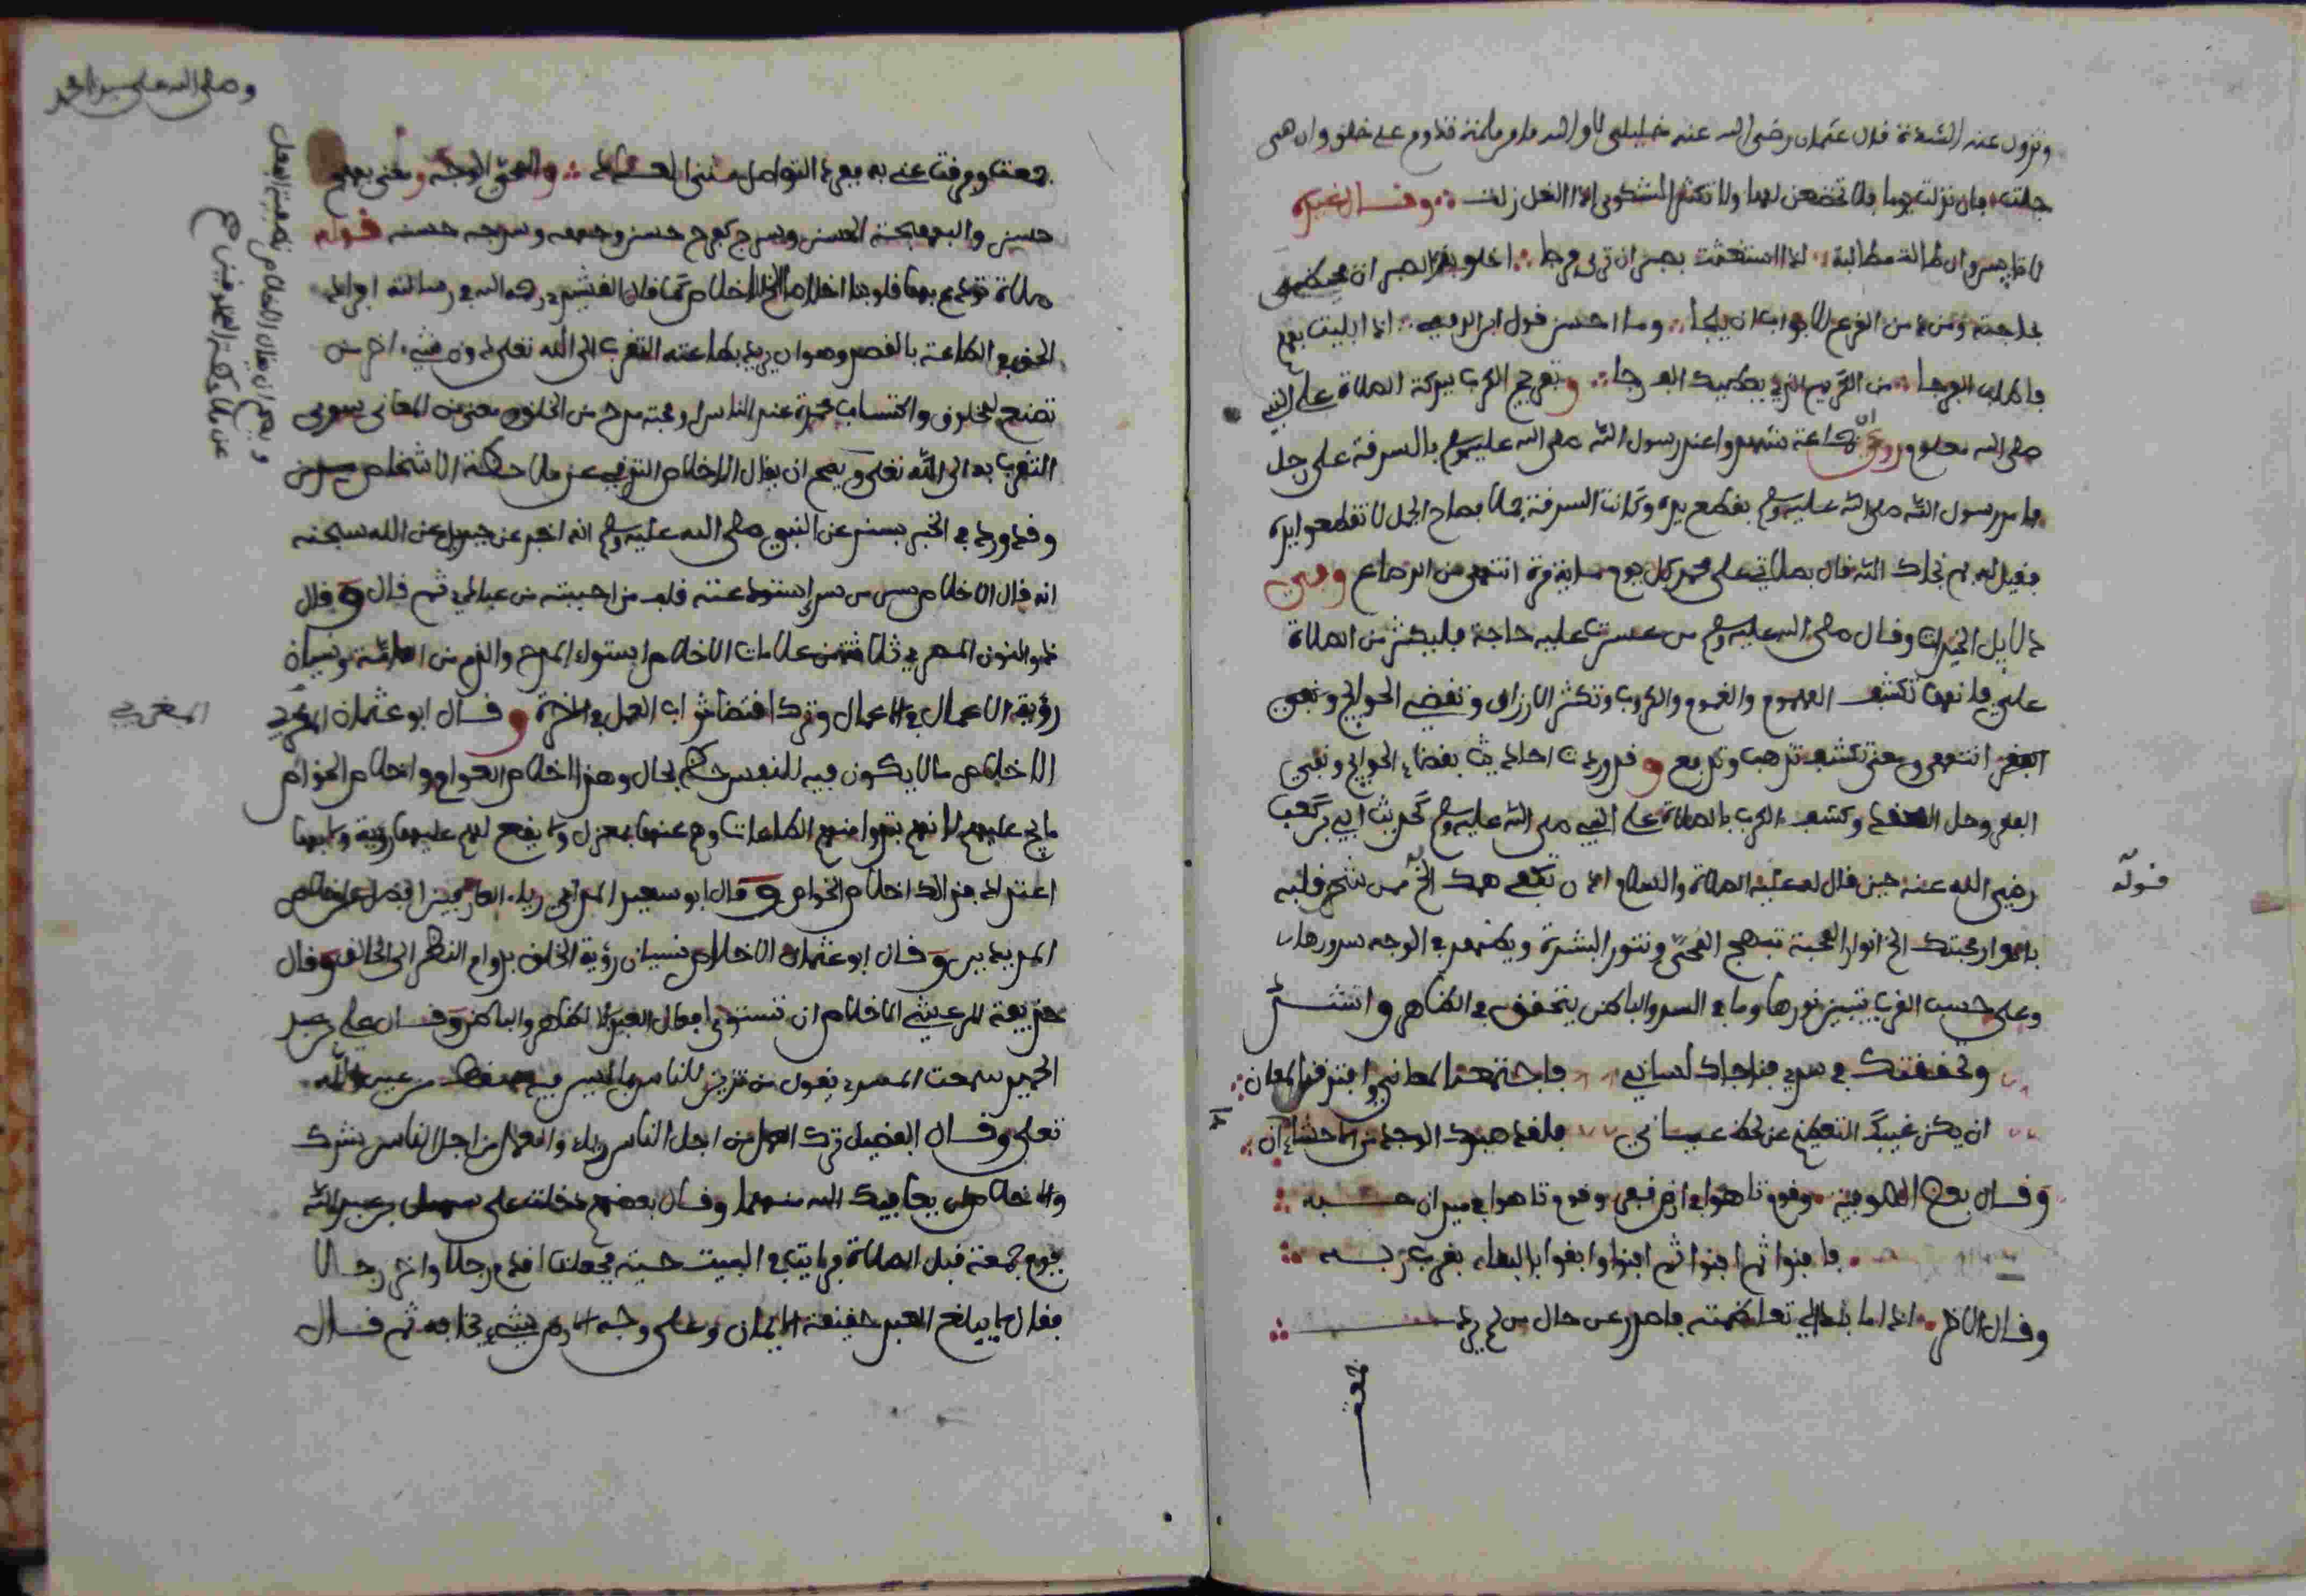 وتزول عنه الشدة قال عثمان رضي الله عنه خليلي لا والله ما من ملمة تدوم على خلق وان هي
جلت فان نزلت يوما فلا تخضعن لها ولا تكثر الشكوى اذا النعل زلت وقال غيره
لا تايسن وان طالت مطالبة اذا استعنت بصبر ان ترى فرجا اخلق بذي الصبر ان يحظى
بحاجته ومدمن القرع للابواب ان يلجا وما احسن قول اذا ابليت بهم
فاطلب الفرجا من الكريم الذي يعطيك الفرجا وتفريج الكرب ببركة الصلاة على النبي
صلى الله معلوم وروي ان جماعة شهدوا عند رسول الله صلى الله عليه وسلم بالسرقة على رجل
فامر رسول الله صلى الله عليه وسلم بقطع يده وكانت السرقة جملا فصاح الجمل لا تقطعوا يده
فقيل له بم نجاك الله قال بصلاتي على محمد كل يوم مائة مرة انتهى من الرصاع وفي
دلايل الخيرات وقال صلى الله عليه وسلم من عسرت عليه حاجة فليكثر من الصلاة
علي فانها تكشف الهموم والغموم والكروب وتكثر الارزاق وتقضي الحوايج وتنفي
الفقر انتهى ومعنى تكشف تذهب وتدفع وقد وردت احاديث بقضاء الحوايج ونفي
الفقر وحل العقد وكشف الكرب بالصلاة على النبي صلى الله عليه وسلم كحديث ابي بن كعب
رضي الله عنه حين قال له عليه الصلاة والسلام اذن تكفى همك الخ قوله من شجر قلبه
بانوار محبتك الخ انوار المحبة تبهج المحيى وتنور البشرة ويظهر في الوجه سرورها
وعلى حسب القرب يتبين نورها وما في السر والباطن يتحقق في الظاهر وانشد
وتحققتك في سري فناجاك لساني فاجتمعنا لمعاني وافترقنا لمعان
ان يكن غيبك التعظيم عن لحظ عياني فلقد صيرك الوجد من الاحشاء دان
وقال بعض الصوفية وقوم تاهوا في ارض قفر وقوم تاهوا في ميدان حبه
فافنوا ثم افنوا ثم افنوا وابقوا بالبقاء بقرب ربه
وقال الاخر اذا ما بدا لي تعاظمته فاصدر عن حال من لم يرد
جمعت
وصلى الله على سيدنا محمد
جمعت وفرقت عني به ففرد التواصل مثنى العدد والمحيى الوجه ومعنى بهيج
حسين والبهجة الحسن وبهج كفرح حسن وبهجه وسرجه حسنه قوله
صلاة تودع بها قلوبنا اخلاص الاخلاص كما قال القشيري رحمه الله في رسالته افراد
الحق في الطاعة بالقصد وهو ان يريد بطاعته التقرب الى الله تعلى دون شيء اخر من
تصنع لمخلوق واكتساب محمدة عند الناس او محبة مدح من الخلق او معنى من المعاني سوى
التقرب به الى الله تعلى ويصح ان يقال الاخلاص التوقي عن ملاحظة الاشخاص
ويصح ان يقال الاخلاص تصفية الفعل
عن ملاحظة المخلوقين صح
وقد ورد في الخبر بسند عن النبي صلى الله عليه وسلم انه اخبر عن جبريل عن الله سبحنه
انه قال الاخلاص سر من سري استودعته قلب من احببته من عبادي ثم قال وقال
ذو النون المصري ثلاث من علامات الاخلاص استواء المدح والذم من العامة ونسيان
رؤية الاعمال في الاعمال وترك اقتضاء ثواب العمل في الاخرة وقال ابو عثمان المغربي
المغربي
الاخلاص ما لا يكون فيه للنفس حظ بحال وهذا اخلاص العوام واخلاص الخواص
ما يجري عليهم لا بهم فتبدوا منهم الطاعات وهم عنها بمعزل ولا يقع لهم عليها رؤية ولا بها
اعتداد فذالك اخلاص الخواص وقال ابو سعيد رياء العارفين افضل من اخلاص
المريدين وقال ابو عثمان الاخلاص نسيان رؤية الخلق بدوام النظر الى الخالق وقال
حذيفة المرعشي الاخلاص ان تستوي افعال العبد في الظاهر والباطن وقال علي بن عبد
الحميد سمعت السري يقول من تزين للناس بما ليس فيه سقط من عين الله
تعلى وقال الفضيل ترك العمل من اجل الناس رياء والعمل من اجل الناس شرك
والاخلاص ان يعافيك الله منهما وقال بعضهم دخلت على سهل بن عبد الله
يوم جمعة قبل الصلاة فرايت في البيت حية فجعلت اقدم رجلا واخر رجلا
فقال لا يبلغ العبد حقيقة الايمان وعلى وجه الارض شيء يخافه ثم قال